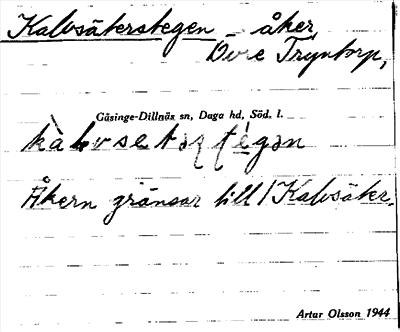 Kalvsäterstegen - åker
Övre Tryntorp,
Gåsinge-Dillnäs sn, Daga hd, Söd. l.
Åkern gränsar till / Kalvsäter.
Artur Olsson 1944